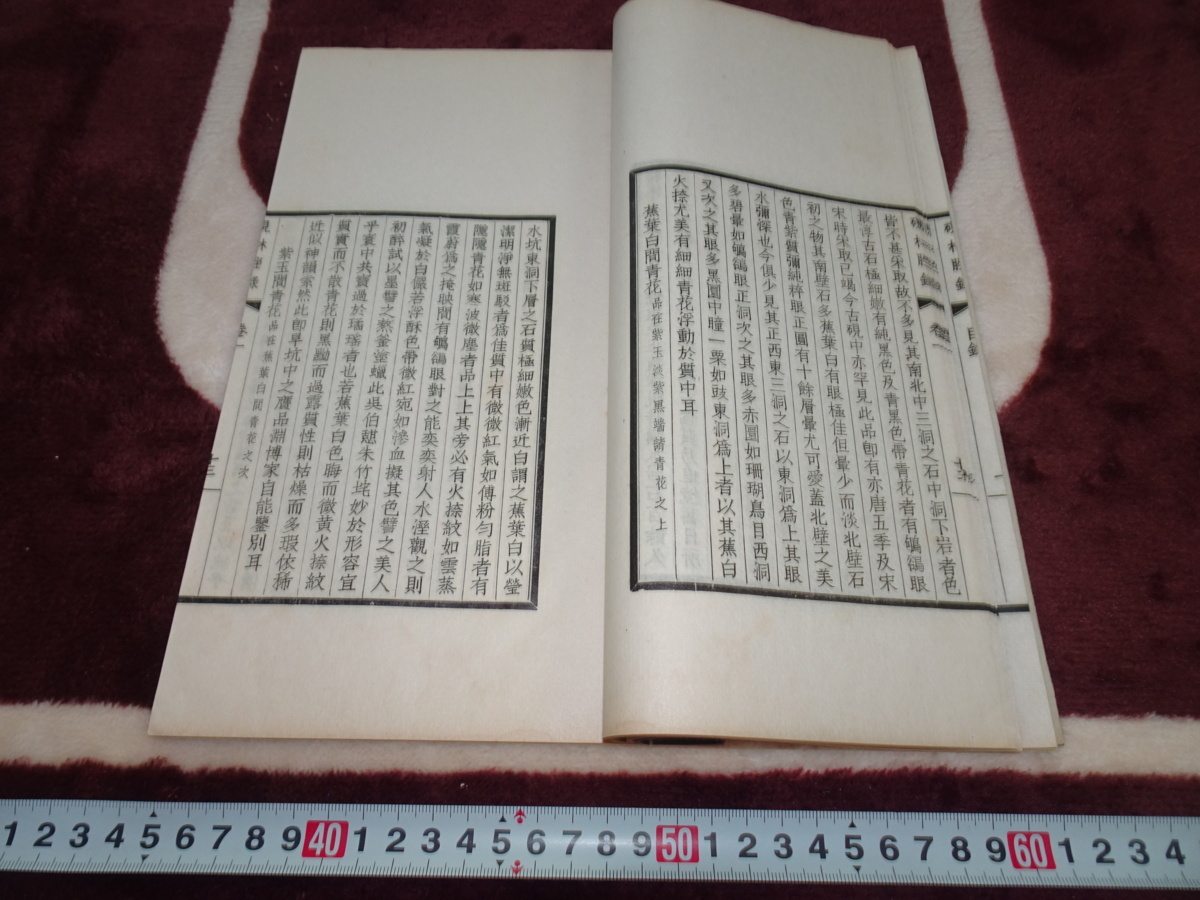 皆不甚宋取故不多見其南北中三洞之石中洞下岩者色
最淳古石極細嫩有純黑色及青黑色帶青花者有鸜鵒眼
宋時宋取已竭今古硯中亦罕見此品卽有亦唐五季及宋
初之物其南壁石多蕉葉白有眼極佳但暈少而淡北壁石
色青紫質彌純粹眼正圓有十餘層暈尤可愛蓋北壁之美
水彌深也今俱少見其正西東三洞之石以東洞爲上其眼
多碧暈如鸜鵒眼正洞次之其眼多赤圓如珊瑚鳥目西洞
又次之其眼多黑圓中瞳一粟如豉東洞爲上者以其蕉白
火捺尤美有細細青花浮動於質中耳
蕉葉白間青花品在紫玉淡紫黑端青花之上
水坑東洞下層之石質極細嫩色漸近白謂之蕉葉白以瑩
潔明淨無斑駁者爲佳質中有微微紅氣如傅粉勻脂者有
隱隱青花如寒波微塵者品上上其旁必有火捺紋如雲蒸
霞蔚爲之掩映間有鸜鵒眼對之能奕奕射人水溼觀之則
氣凝於白儼若浮酥色帶微紅宛如滲血擬其色譬之美人
初醉試以墨譬之熬釜塗蠟此吳伯朱竹垞妙於形容宜
乎寰中共寶過於瑤者也若蕉葉白色晦而微黃火捺紋
質實而不散青花則黑黝而過露質性則枯燥而多瑕依稀
近似神韻索然此卽旱坑中之贋品淵博家自能鑒別耳
紫玉間青花品在蕉葉白間青花之次
卷一
目錄
1 2 3 4 5 6 7 8 9 40 1 2 3 4 5 6 7 8 9 50 1 2 3 4 5 6 7 8 9 60 1 2 3 4